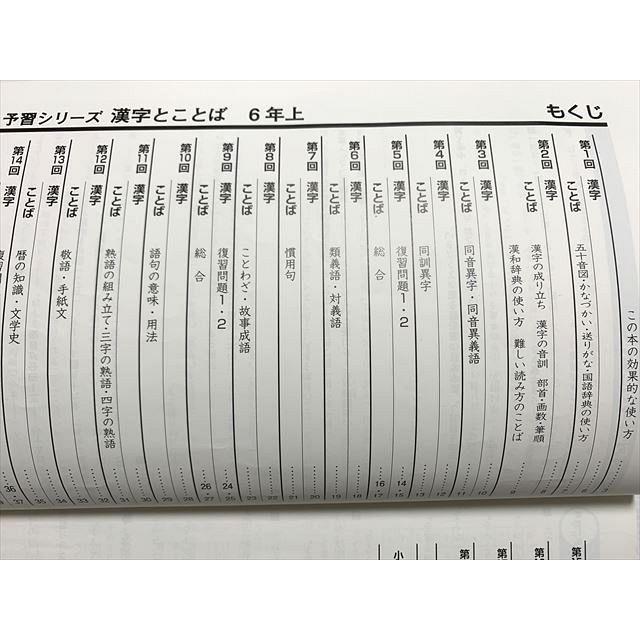 予習シリーズ 漢字とことば 6年上
もくじ
この本の効果的な使い方 3
第1回 漢字 6
ことば 五十音図・かなづかい・送りがな・国語辞典の使い方 7
第2回 漢字 漢字の成り立ち 漢字の音訓 部首・画数・筆順 8
ことば 漢和辞典の使い方 難しい読み方のことば 9
第3回 漢字 10
ことば 同音異字・同音異義語 11
第4回 漢字 12
ことば 同訓異字 13
第5回 漢字 復習問題1・2 14・15
ことば 総合 16・17
第6回 漢字 18
ことば 類義語・対義語 19
第7回 漢字 20
ことば 慣用句 21
第8回 漢字 22
ことば ことわざ・故事成語 23
第9回 漢字 復習問題1・2 24・25
ことば 総合 26・27
第10回 漢字 28
ことば 語句の意味・用法 29
第11回 漢字 30
ことば 熟語の組み立て・三字の熟語・四字の熟語 31
第12回 漢字 32
ことば 敬語・手紙文 33
第13回 漢字 34
ことば 暦の知識・文学史 35
第14回 漢字 36・37
小
第
第
第